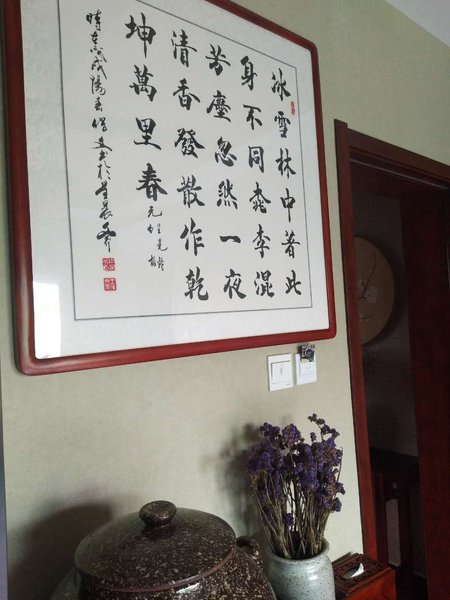 冰雪林中著此
身不同桃李混
芳塵忽然一夜
清香發散作乾
坤萬里春 元 王冕
時在戊戌陽春